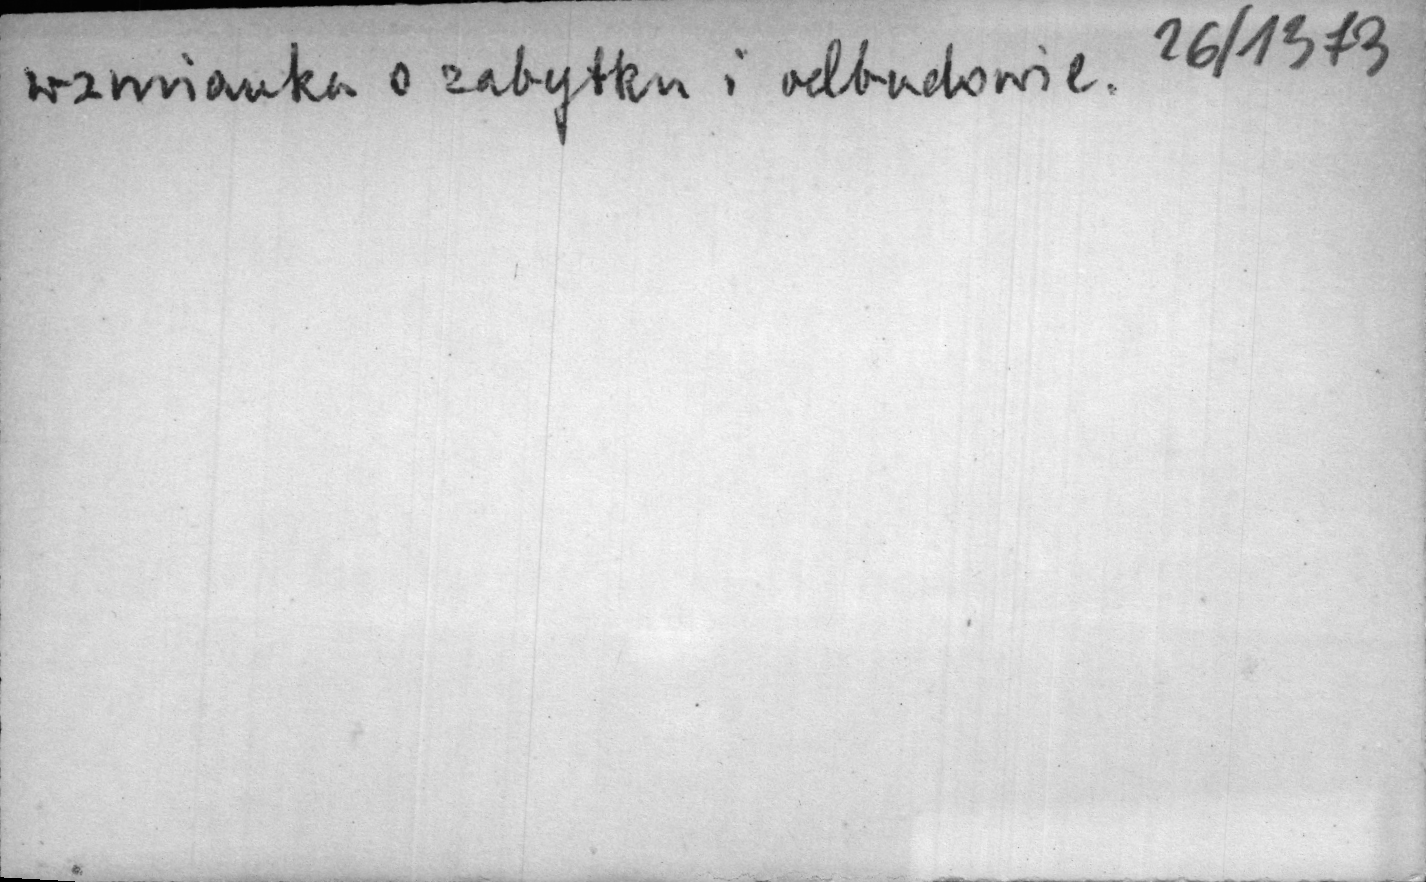 wzmianka o zabytku i odbudowie. 26/1373